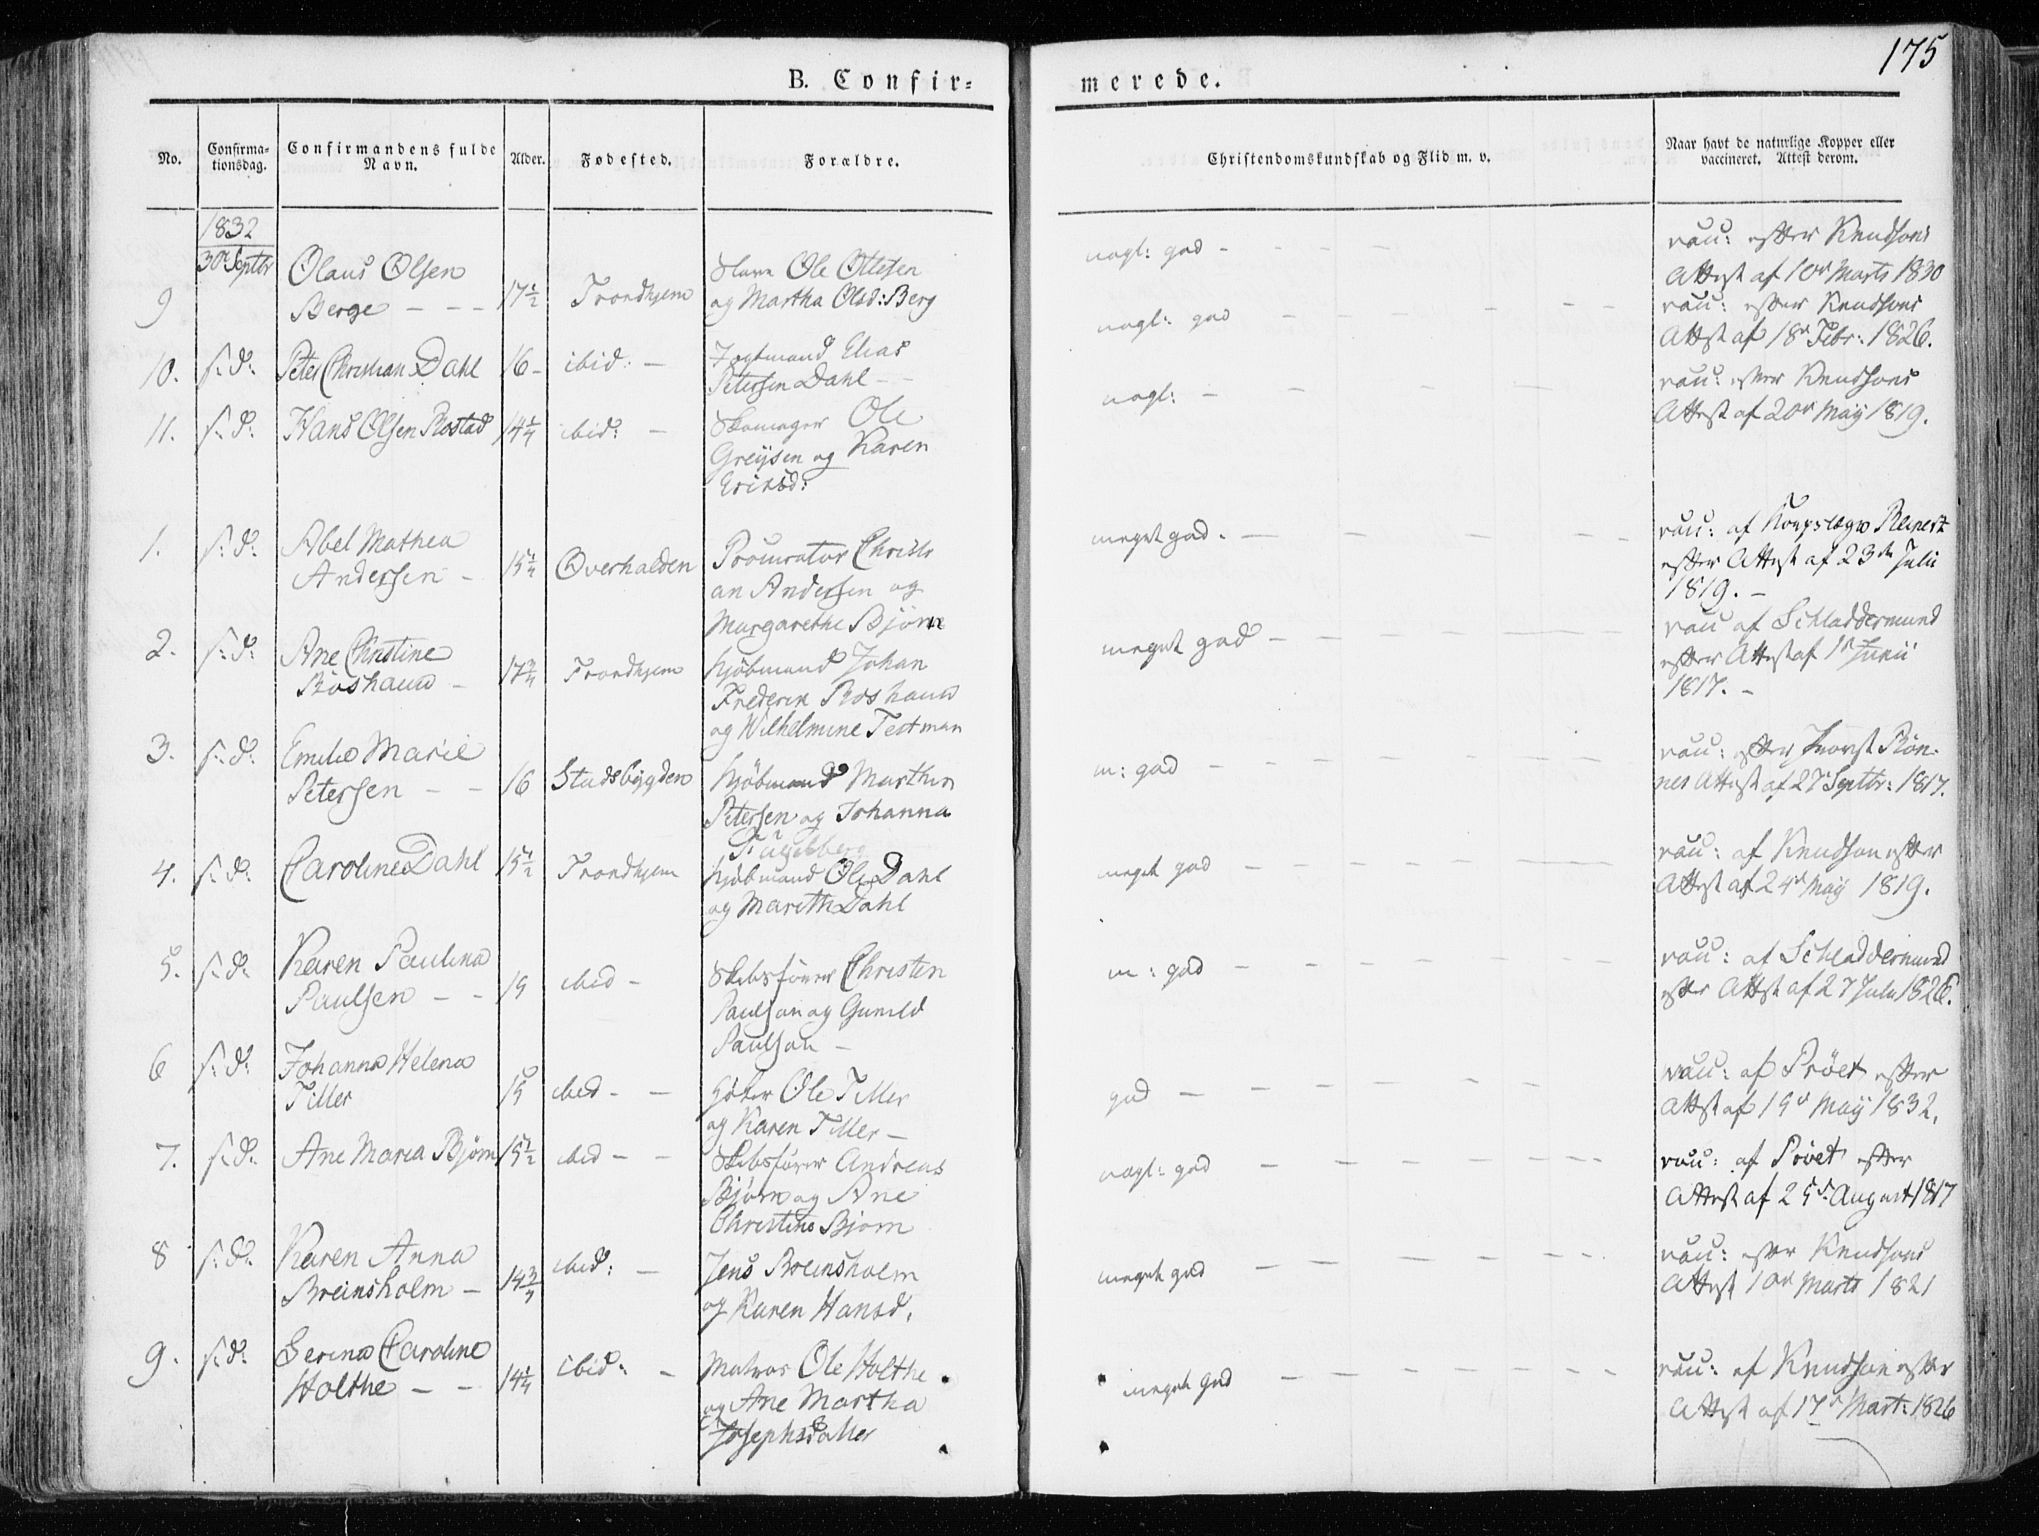 175
B. Confir=
merede.
No.
Confirma-
tionsdag.
Confirmandens fulde
Navn.
Alder.
Fødested.
Forældre.
Christendomskundskab og Flid m. v.
Naar havt de naturlige Kopper eller
vaccineret. Attest derom.
1832
30 Septbr
9 Olaus Olsen
Berge - - - 17½ Trondhjem
Ole Ottesen
og Martha Olsd: Berg
nogl: god -
vau: efter Knudsons
Attest af 10de Marts 1830
10. s. d. Peter Christian Dahl 16 - ibid: -
Elias
Petersen Dahl - -
nogl: god
vau: efter Knudsons
Attest af 18d Febr: 1826.
11. s. d. Hans Olsen Rostad 14¼ ibid: -
Skomager Ole
Greysen og Karen
Eriksd:
nogl: -
vau: efter Knudsons
Attest af 20de May 1819.
1. s. d. Abel Mathea
Andersen - 15¼ Overhalden
Procurator Christi
an Andersen og
Margarethe Bjørn
meget god. -
vau: af Reinert
efter Attest af 23de Julii
1819. -
2. s. d. Ane Christine
Roshauw - 17¾ Trondhjem
Kjøbmand Johan
Frederik Roshauw
og Wilhelmine Testman
meget god -
vau af Schladdermund
efter Attest af 1 Junii
1817. -
3. s. d. Emilie Marie
Petersen - - 16 Stadsbygden
Kjøbmand Marthin
Petersen og Johanna
m: god
vau: efter Røn-
nes Attest af 27 Septbr: 1817.
4. s. d. Caroline Dahl 15½ Trondhjem
Kjøbmand Ole Dahl
og Marith Dahl
meget god
vau: af Knudson efter
Attest af 24d May 1819.
5. s. d. Karen Paulina
Paulsen - - 19 ibid -
Skibsfører Christen
Paulson og Gunild
Paulson -
m: god
vau: af Schladdermund
efter Attest af 27 Julii 1826.
6 s. d. Johanna Helena
Tiller 15 ibid - -
Ole Tiller
og Karen Tiller -
god -
vau: af Prøet efter
Attest af 19d May 1832.
7. s. d. Ane Maria Bjørn 15½ ibid - -
Skibsfører Andreas
Bjørn og Ane
Christine Bjørn
nogl: god
vau: af Prøet efter
Attest af 25d August 1817
8 s. d. Karen Anna
Breinsholm - 14¾ ibid: -
Jens Breinsholm
og Karen Hansd.
meget god
vau: efter Knudsons
Attest 10d Marts 1821
9. s. d. Serina Caroline
Holthe - - 14¼ ibid: -
Matros Ole Holthe
og Ane Martha
Josephsdatter
meget god
vau: af Knudson efter
Attest af 17d Mart: 1826